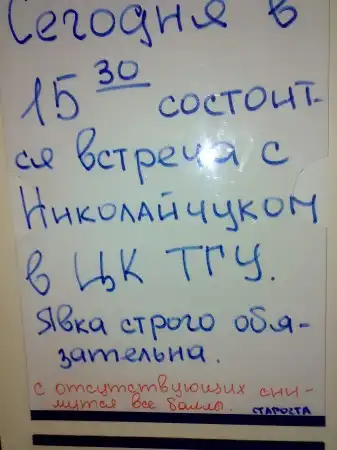 Сегодня в
15 30 состоит-
ся встреча с
Николайчуком
в ЦК ТГУ.
Явка строго обя-
зательна.
с отсутствующих сни-
мутся все баллы. СТАРОСТА